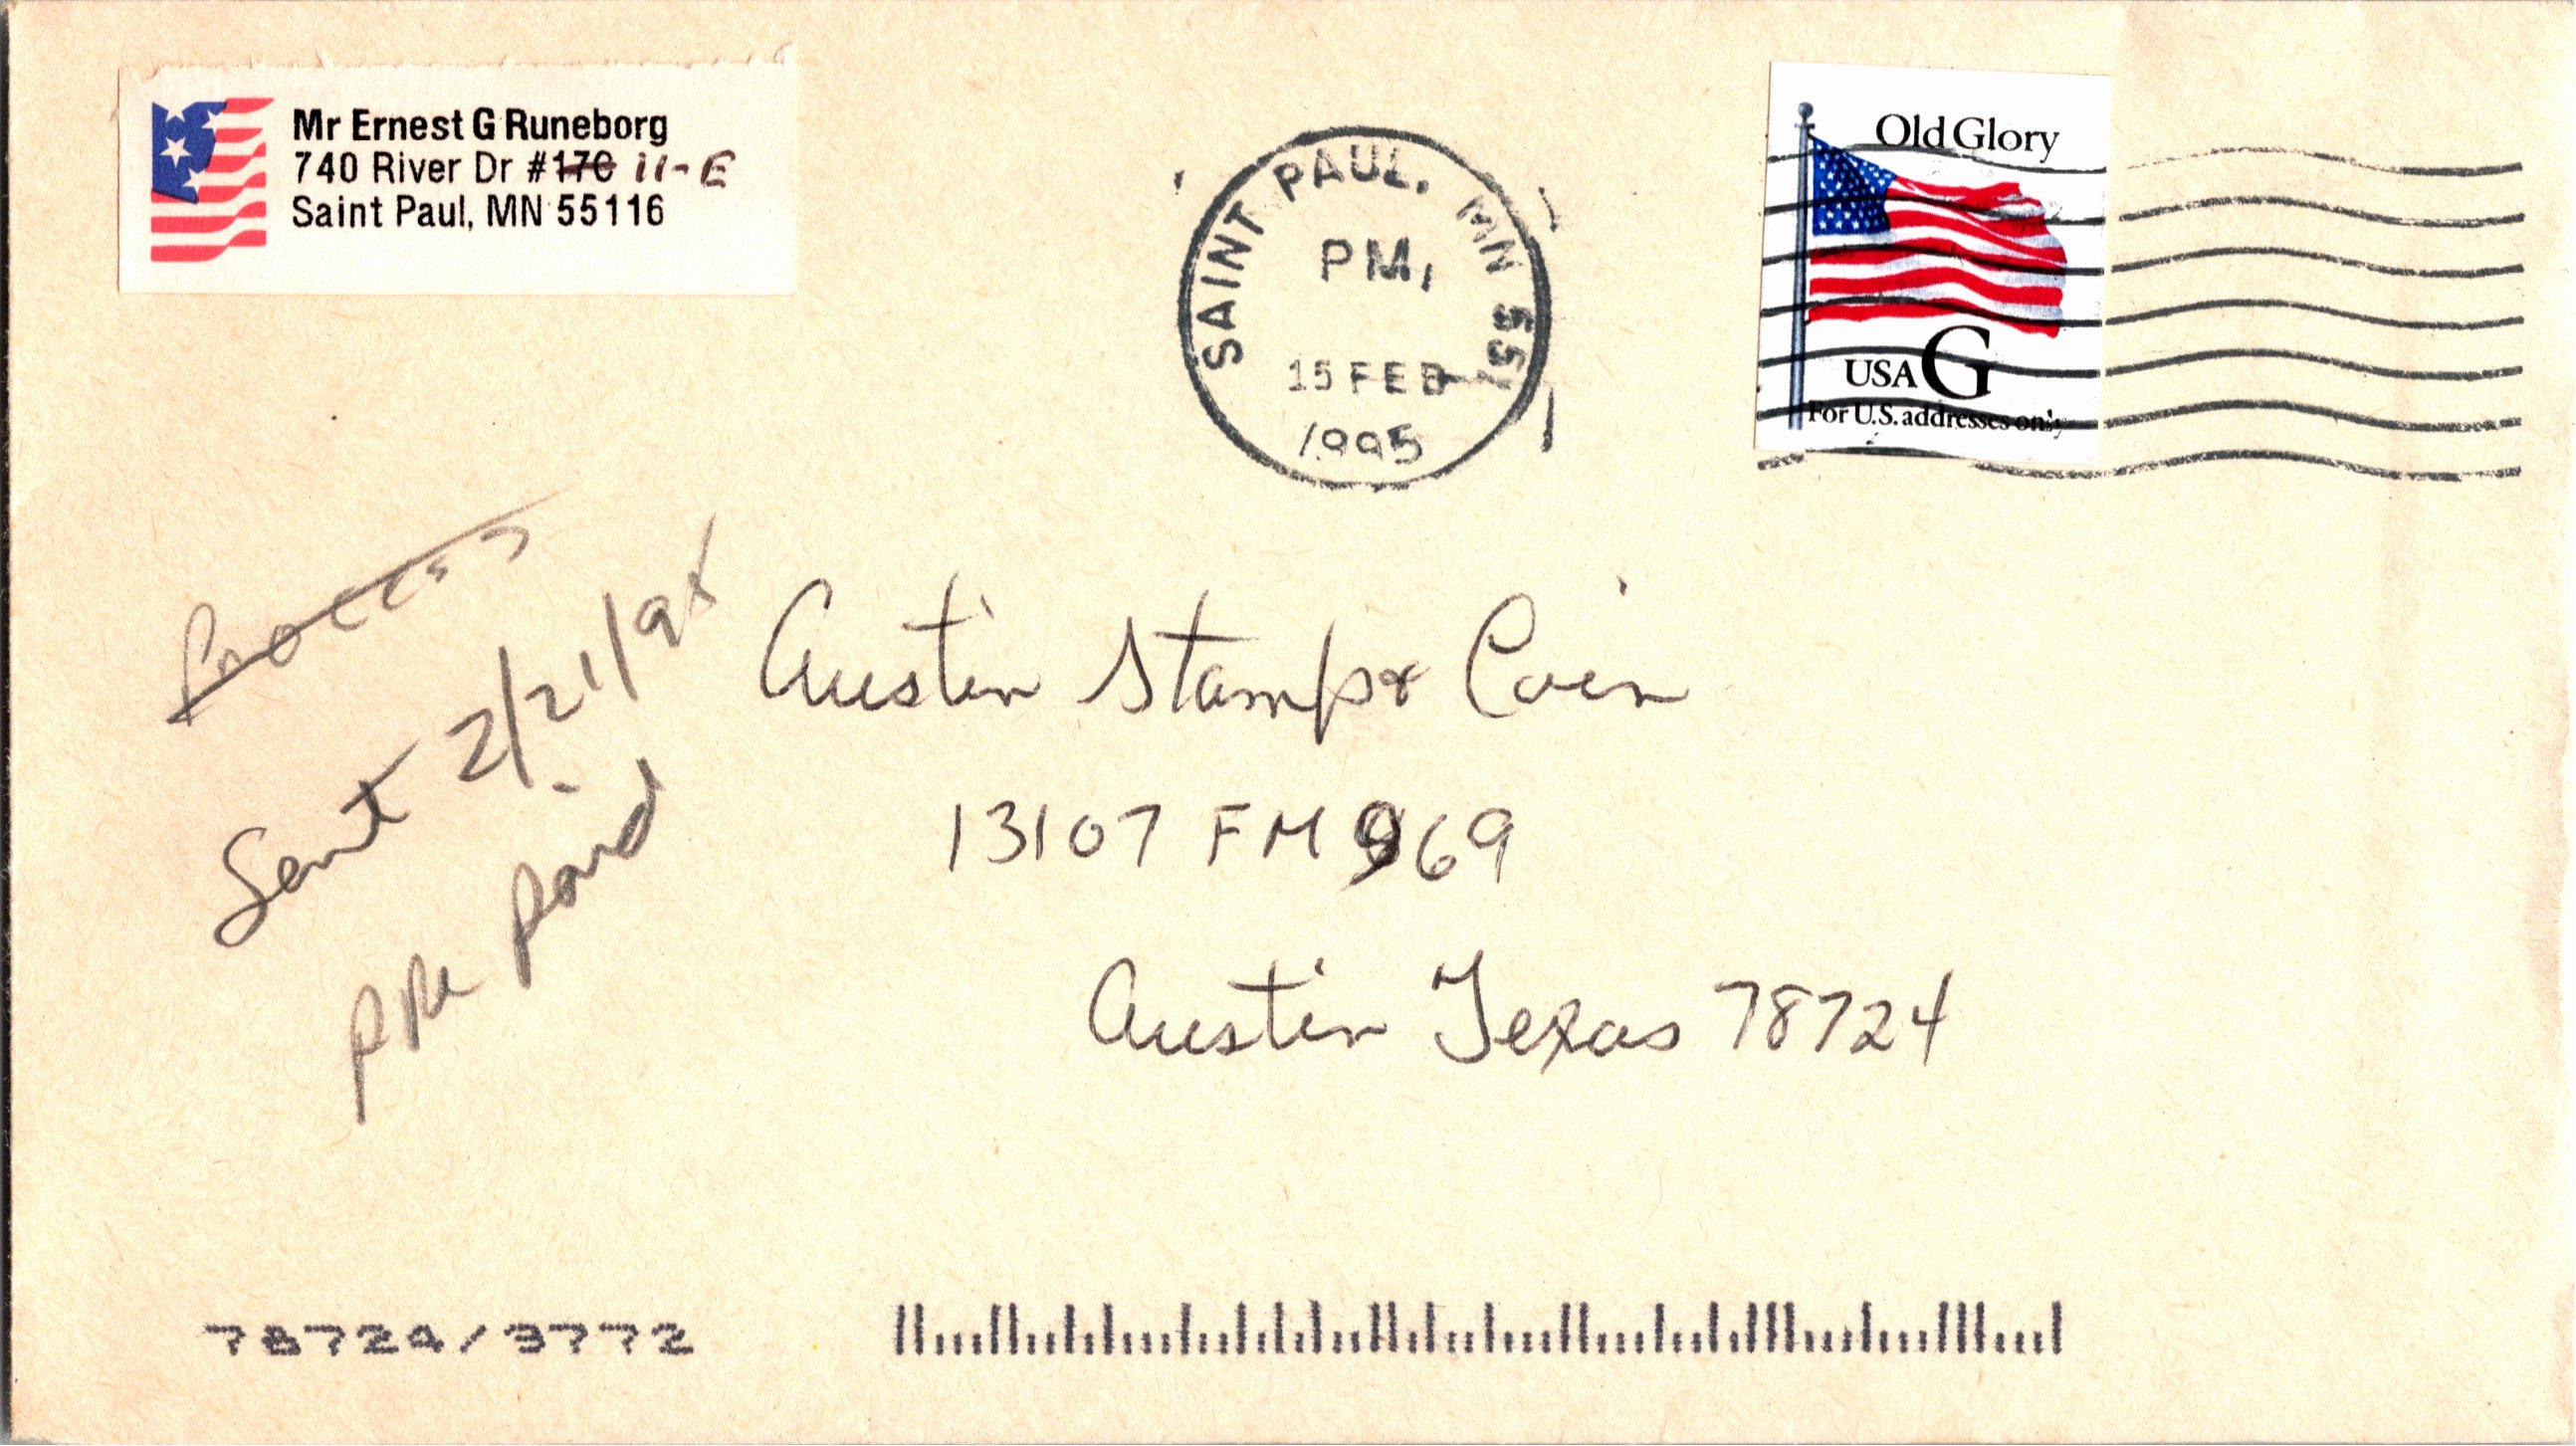 Mr Ernest G Runeborg
740 River Dr #170 11-E
Saint Paul, MN 55116
SAINT PAUL, MN 551
PM
15 FEB
1995
Old Glory
USA G
For U.S. addresses only
Process
Sent 2/21/95
Austin Stamp & Coin
13107 FM 969
Austin Texas 78724
78724/3772